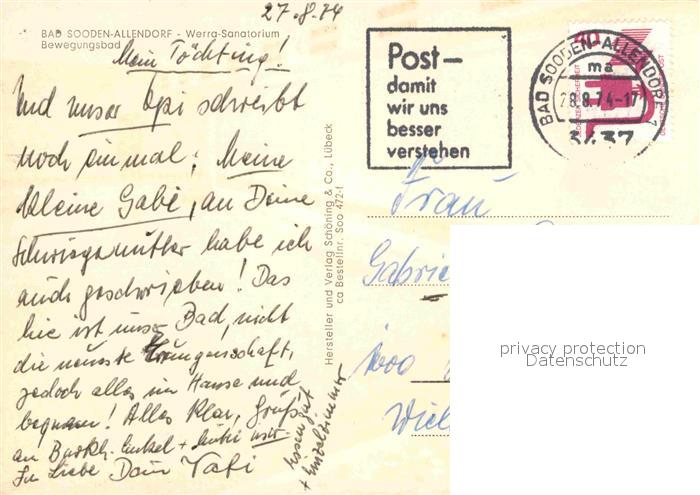 27.8.74
BAD SOODEN-ALLENDORF - Werra-Sanatorium
Bewegungsbad
Mein Töchting!
Und unser Opi schreibt
noch einmal: Meine
kleine Gabi, an Deine
Schwiegermutter habe ich
auch geschrieben! Das
hie ist unser Bad, nicht
die neuste Errungenschaft,
jedoch alles im Hause und
bequem! Alles klar, Grüße
an Enkel +
In Liebe Dein Vati
Essen gut
+ Einzelzimmer
Hersteller und Verlag Schöning & Co., Lübeck
ca Bestellnr. Soo 472-f
Post-
damit
wir uns
besser
verstehen
BAD SOODEN-ALLENDORF 1
ma
28.8.74-17
3437
40
Frau
privacy protection
Datenschutz